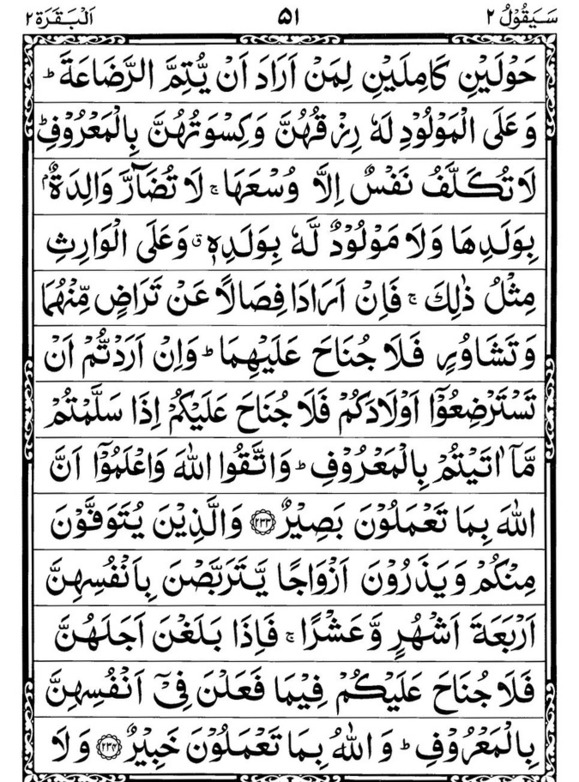 سَيَقُوْلُ ٢ ٥١ اَلْبَقَرَة ٢
حَوْلَيْنِ كَامِلَيْنِ لِمَنْ اَرَادَ اَنْ يُّتِمَّ الرَّضَاعَةَ ؕ
وَعَلَى الْمَوْلُوْدِ لَهٗ رِزْقُهُنَّ وَكِسْوَتُهُنَّ بِالْمَعْرُوْفِ ؕ
لَا تُكَلَّفُ نَفْسٌ اِلَّا وُسْعَهَا ۚ لَا تُضَآرَّ وَالِدَةٌۢ
بِوَلَدِهَا وَلَا مَوْلُوْدٌ لَّهٗ بِوَلَدِهٖ ۗ وَعَلَى الْوَارِثِ
مِثْلُ ذٰلِكَ ۚ فَاِنْ اَرَادَا فِصَالًا عَنْ تَرَاضٍ مِّنْهُمَا
وَتَشَاوُرٍ فَلَا جُنَاحَ عَلَيْهِمَا ؕ وَاِنْ اَرَدْتُّمْ اَنْ
تَسْتَرْضِعُوْٓا اَوْلَادَكُمْ فَلَا جُنَاحَ عَلَيْكُمْ اِذَا سَلَّمْتُمْ
مَّآ اٰتَيْتُمْ بِالْمَعْرُوْفِ ؕ وَاتَّقُوا اللّٰهَ وَاعْلَمُوْٓا اَنَّ
اللّٰهَ بِمَا تَعْمَلُوْنَ بَصِيْرٌ ﴿٢٣٣﴾ وَالَّذِيْنَ يُتَوَفَّوْنَ
مِنْكُمْ وَيَذَرُوْنَ اَزْوَاجًا يَّتَرَبَّصْنَ بِاَنْفُسِهِنَّ
اَرْبَعَةَ اَشْهُرٍ وَّعَشْرًا ۚ فَاِذَا بَلَغْنَ اَجَلَهُنَّ
فَلَا جُنَاحَ عَلَيْكُمْ فِيْمَا فَعَلْنَ فِيْٓ اَنْفُسِهِنَّ
بِالْمَعْرُوْفِ ؕ وَاللّٰهُ بِمَا تَعْمَلُوْنَ خَبِيْرٌ ﴿٢٣٤﴾ وَلَا